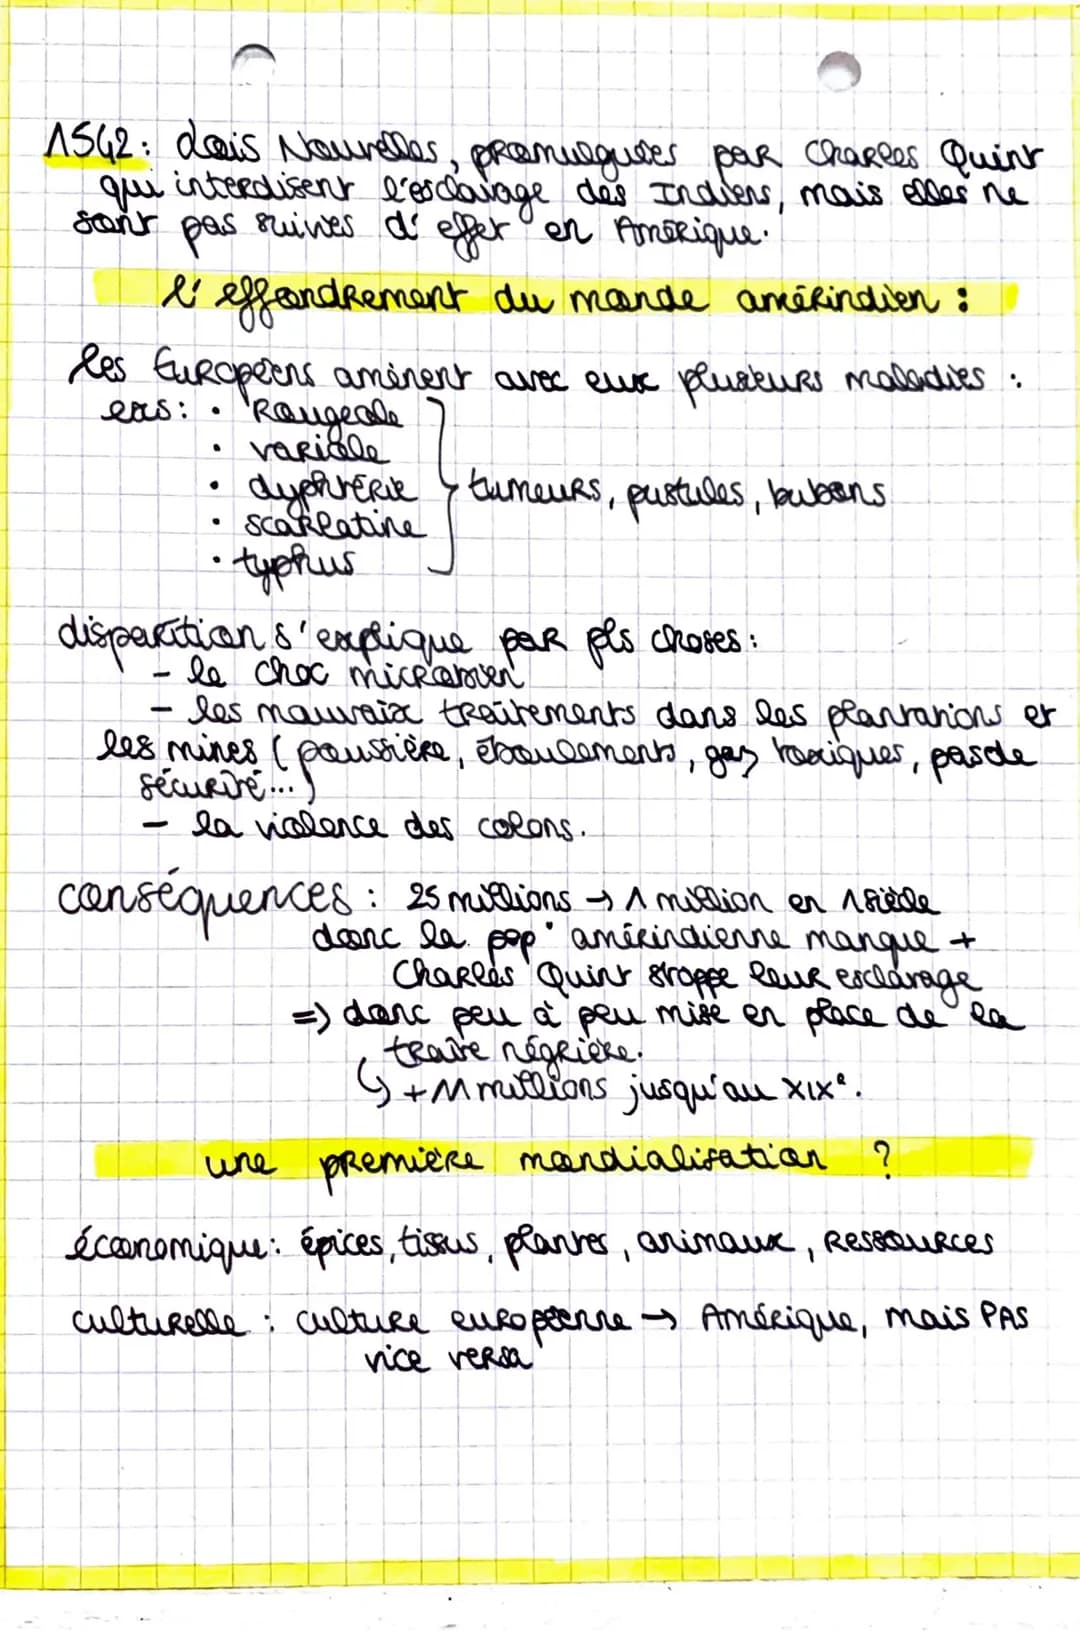 1542: Lois Nouvelles, promulguées par Charles Quint
qui interdisent l'esclavage des Indiens, mais elles ne
sont pas suivies d'effet en Amérique.
l'effondrement du monde amérindien :
les Européens amènent avec eux plusieurs maladies :
exs: • Rougeole
• variole
• dyphtérie } tumeurs, pustules, bubons
• scarlatine
• typhus
disparition s'explique par pls choses :
- le choc microbien
- les mauvaix traitements dans les plantations et
les mines (poussière, éboulements, gaz toxiques, pas de
sécurité...)
- la violence des colons.
conséquences : 25 millions → 1 million en 1 siècle
donc la pop° amérindienne manque +
Charles Quint stoppe leur esclavage
=> donc peu à peu mise en place de la
traite négrière.
↳ + 11 millions jusqu'au XIXe.
une première mondialisation ?
économique: épices, tissus, plantes, animaux, ressources
culturelle : culture européenne → Amérique, mais PAS
vice versa